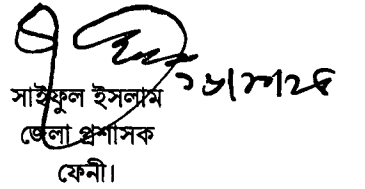 সাইফুল ইসলাম
জেলা প্রশাসক
ফেনী।